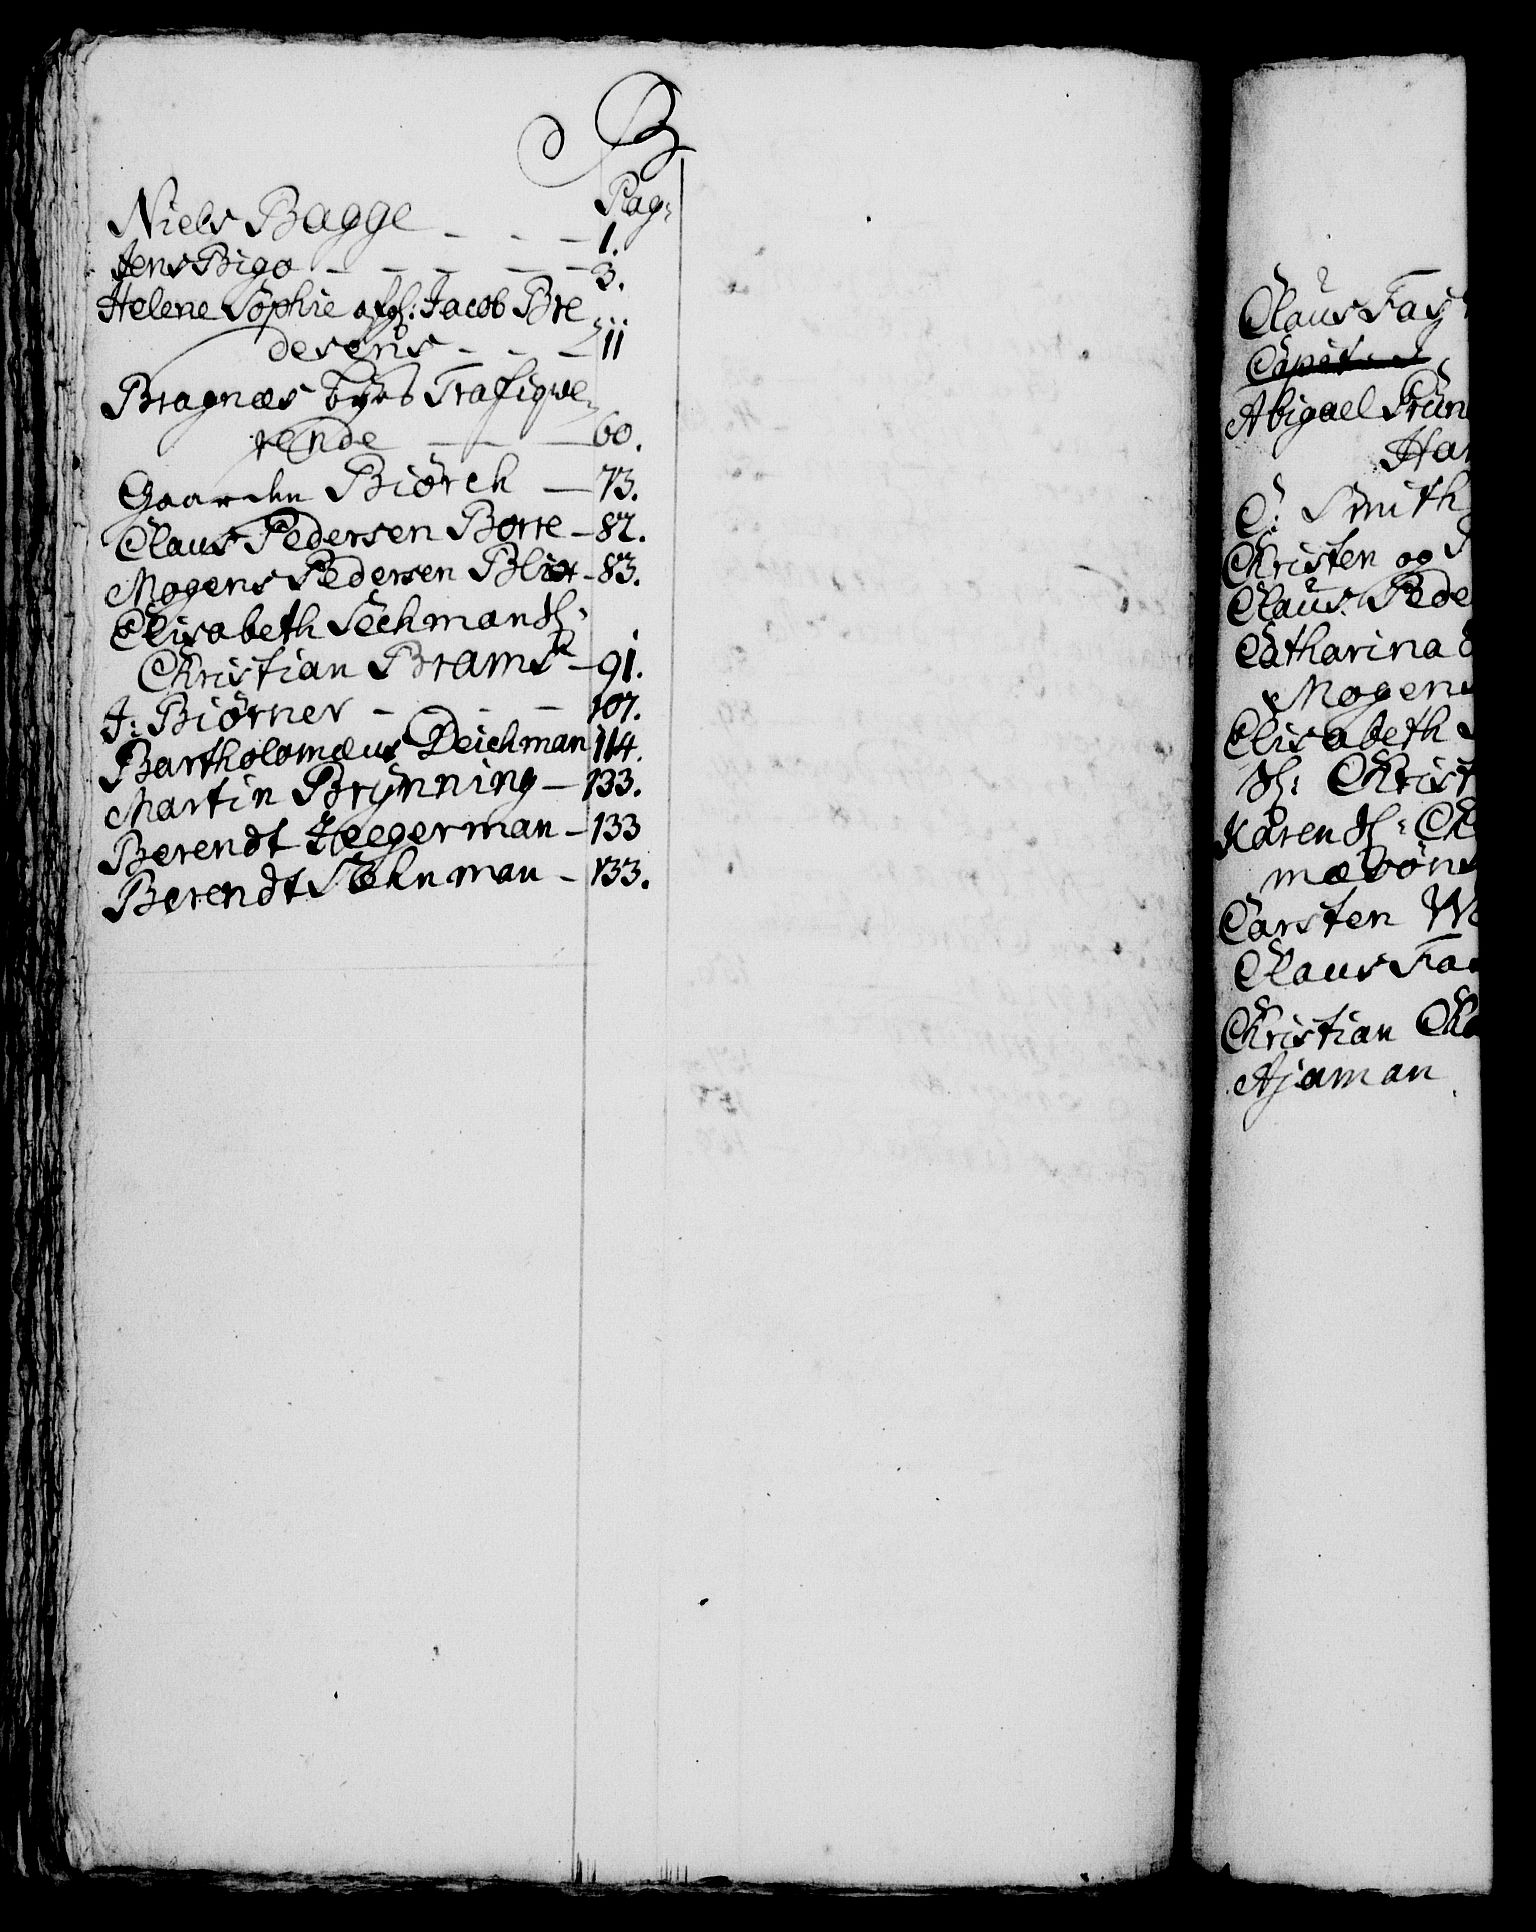 B
Pag:
Niels Bagge - - - 1.
Jens Bigo - - - - - 3.
Helene Sophie afg: Jacob Bre
desens - - - 11
Bragnæs byes Trafiqve
rende - - - 60.
Gaarden Biørch - 73.
Claus Pedersen Borre - 82.
Mogens Pedersen Blix - 83.
Elisabeth Sechmans
Christian Brams - 91.
J: Biørner - - - 107.
Bartholomæus Deichman 114.
Martin Brynning - 133.
Berendt Heegerman - 133
Berendt - 133.
Claus Fas
Abigael
Har
C: Smith
Christen og
Claus Pede
Catharina
Mogens
Elisabeth
Christ
Karen
Carsten W
Claus Fa
Christian Ch
Ajaman